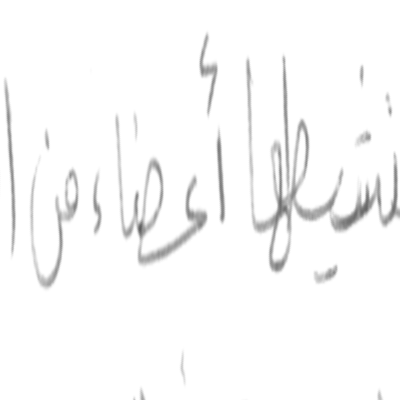 نشيطها أعضاء من ا